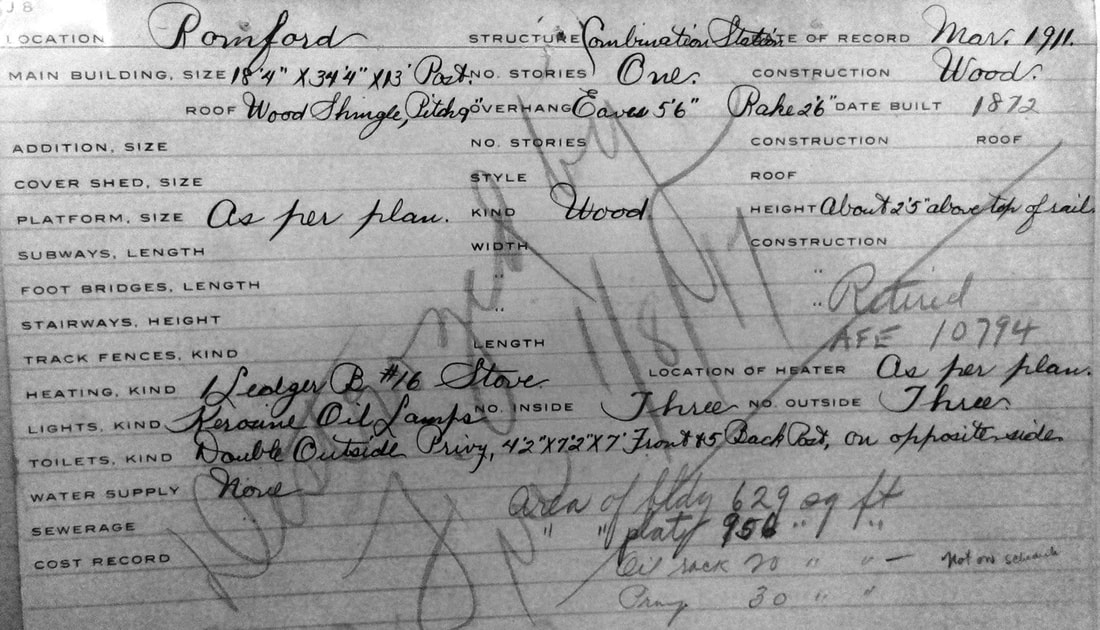 J 8
LOCATION Romford STRUCTURE Combination Station DATE OF RECORD Mar. 1911.
MAIN BUILDING, SIZE 18'4" X 34'4" X 13' Post. NO. STORIES One. CONSTRUCTION Wood.
ROOF Wood Shingle, Pitch 9" OVERHANG Eaves 5'6" Rake 2'6" DATE BUILT 1872
ADDITION, SIZE NO. STORIES CONSTRUCTION ROOF
COVER SHED, SIZE STYLE ROOF
PLATFORM, SIZE As per plan. KIND Wood. HEIGHT About 2'5" above top of rail.
SUBWAYS, LENGTH WIDTH CONSTRUCTION
FOOT BRIDGES, LENGTH " "
STAIRWAYS, HEIGHT " " Retired
TRACK FENCES, KIND LENGTH AFE 10794
HEATING, KIND 1 Ledger B #16 Stove LOCATION OF HEATER As per plan.
LIGHTS, KIND Kerosine Oil Lamps NO. INSIDE Three NO. OUTSIDE Three.
TOILETS, KIND Double Outside Privy, 4'2" X 7'2" X 7' Front & 5' Back Post, on opposite side
WATER SUPPLY None
Area of bldg 629 sq ft
SEWERAGE " " platf 956 " "
COST RECORD Oil rack 20 " " — Not on schedule
Privy 30 " "
Destroyed by
1/8/47